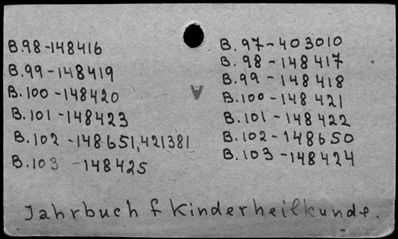 B.98-148416
B.99-148419
B.100-148420
B.101-148423
B.102-148651,421381
B.103-148425
B.97-403010
B.98-148417
B.99-148418
B.100-148421
B.101-148422
B.102-148650
B.103-148424
Jahrbuch f Kinderheilkunde.